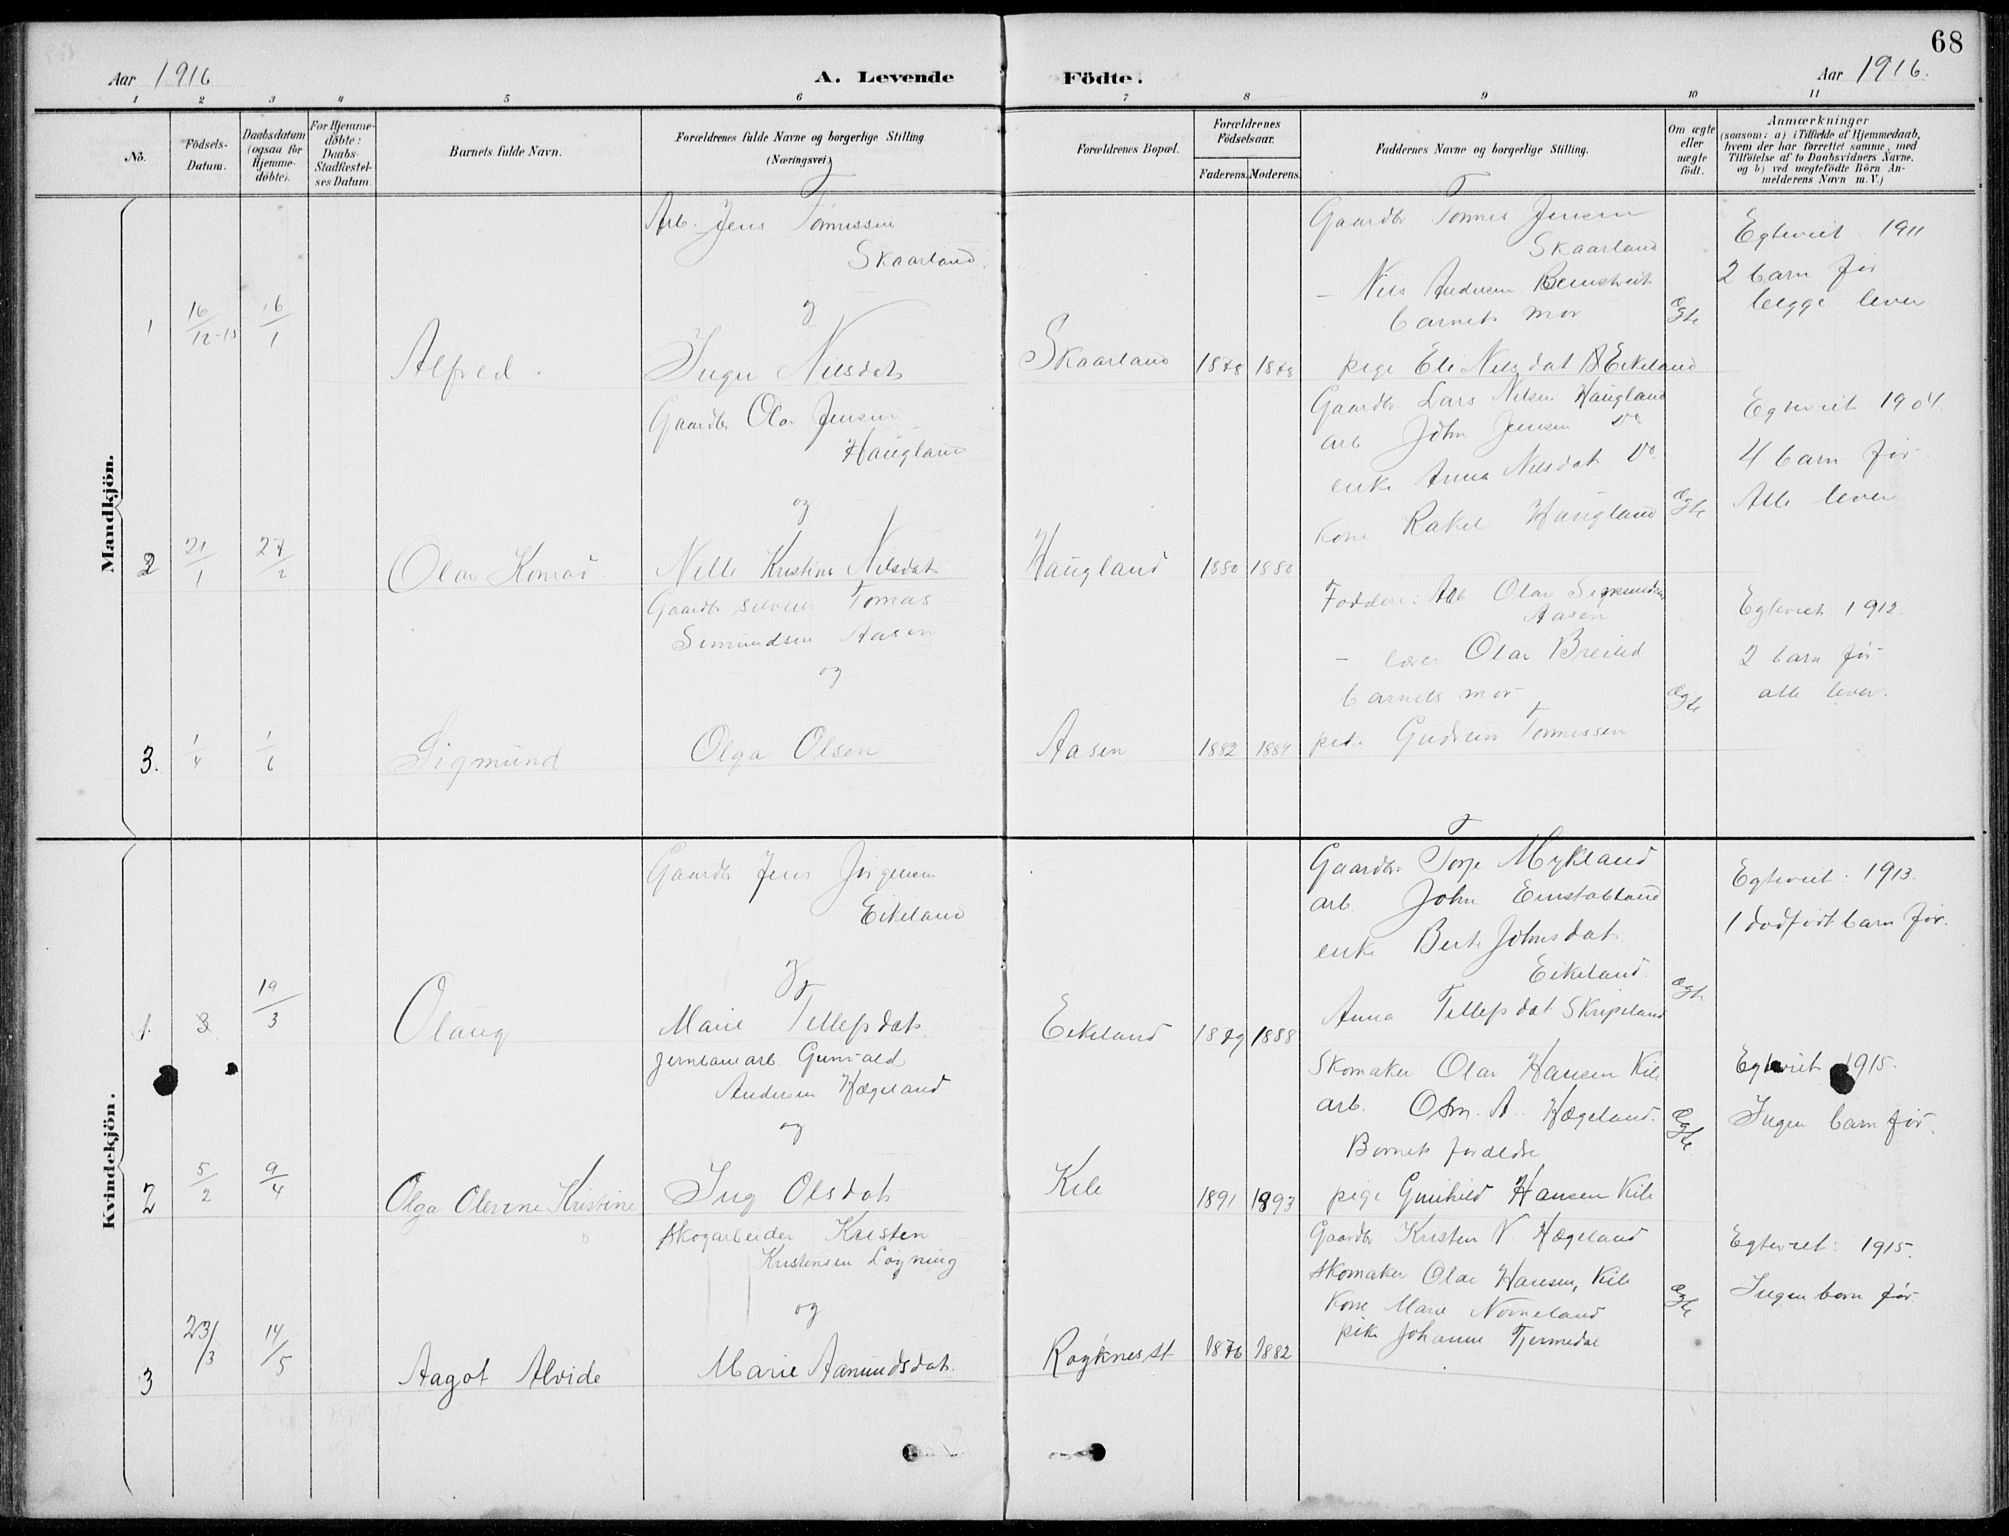 68
Aar 1916
A. Levende Födte.
Aar 1916.
1 2 3 4 5 6 7 8 9 10 11
No.
Födsels-Datum.
Daabsdatum (ogsaa for Hjemme-döbte).
For Hjemme-döbte: Daabs-Stadfæstel-ses Datum.
Barnets fulde Navn.
Forældrenes fulde Navne og borgerlige Stilling. (Næringsvei)
Forældrenes Bopæl.
Forældrenes Födselsaar.
Faderens. Moderens.
Faddernes Navne og borgerlige Stilling.
Om ægte eller uægte födt.
Anmærkninger
(saasom: a) i Tilfælde af Hjemmedaab,
hvem der har forrettet samme, med
Tilföielse af to Daabsvidners Navne.
og b) ved uegtefödte Börn An-
melderens Navn m. V.)
Mandkjön.
1
16/12-15
16/1
Alfred.
Arb. Jens Tønnessen
Skaarland.
og
Inger Nilsdat
Skaarland
1878 1878
Gaardbr Tønnes Jensen
Skaarland
- Nils Andersen
barnets mor
pige Eli Nilsdat Eikeland
Ægte
Egteviet 1911
2 barn før
begge lever
2
21/1
27/2
Olav Konrad
Gaardbr Olav Jensen
Haugland
og
Nelli Kristine Nilsdat
Haugland
1880 1880
Gaardbr Lars Nilsen Haugland
arb John Jensen Do
enke Anna Nilsdat Do
Kone Rakel Haugland
Ægte
Egteviet 1904.
4 barn før
Alle lever
3.
1/4
1/6
Sigmund
Gaardbr Tomas
Simundsen Aasen
og
Olga Olsen
Aasen
1882 1889
Faddere: Arb Olav Sigmundsen
Aasen
- lærer Olav Breilid
barnets mor
pike Gudrun Tønnessen
Ægte
Egteviet 1912.
2 barn før
alle lever.
Kvindekjön.
1.
3
19/3
Olaug
Gaardbr Jens Jørgensen
Eikeland
og
Marie Tellefsdat.
Eikeland
1879 1888
Gaardbr. Torje Mykland
arb. John
enke Berte Johnsdat
Eikeland.
Anna Tellefsdat Skripeland
Ægte
Egteviet 1913.
1 dødfødt barn før.
2
5/2
9/4
Olga Olerine Kristine
jernbanearb. Gunvald
Andersen Hægeland
og
Ing Olsdat
Kile
1891 1893
Skomaker Olav Hansen Kile
arb. Osm. A. Hægeland.
Barnets foreldre
pige Gunhild Hansen Kile
Ægte
Egteviet 1915.
Ingen barn før.
3
23/3
14/5
Aagot Alvide
skogarbeider Karsten
Kristensen Løyning
og
Marie Aamundsdat.
Røyknes st
1876 1882
Gaardbr Kristen N. Hægeland
skomaker Olav Hansen, Kile
Kone Marie Nomeland
pike Johanne Fjermedal
Ægte
Egteviet: 1915.
Ingen barn før